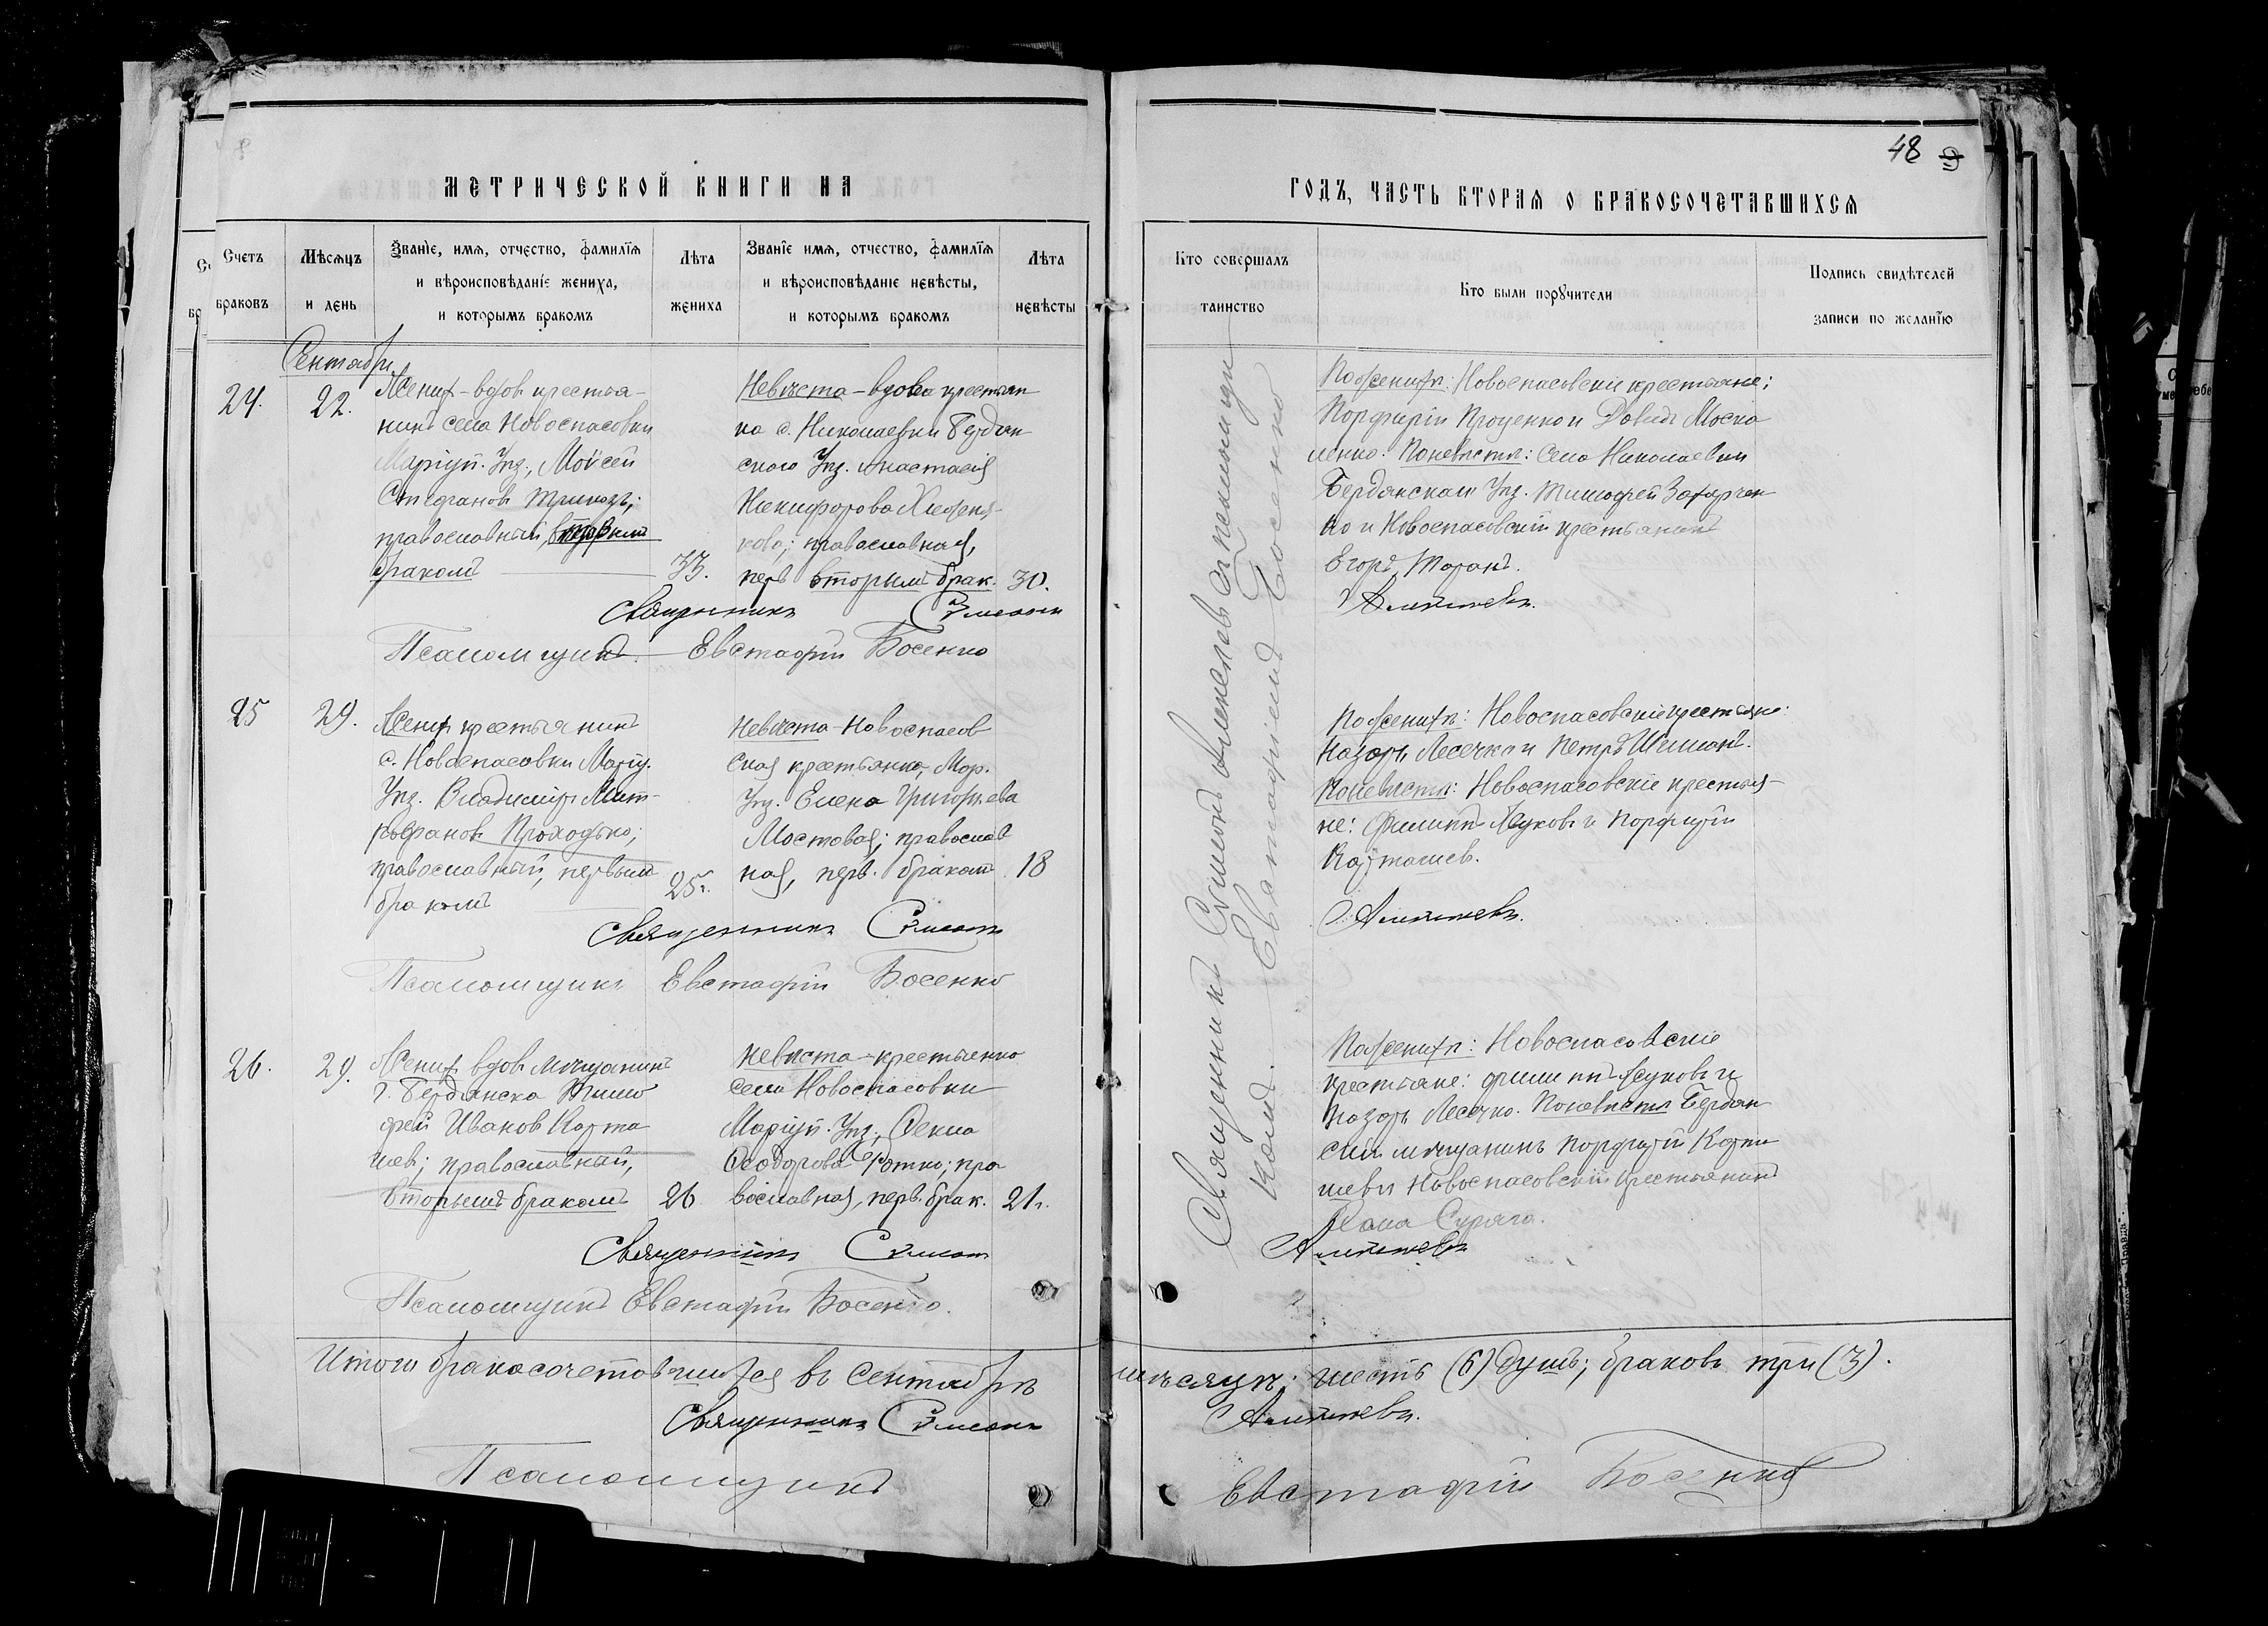 48
МЕТРИЧЕСКОЙ КНИГИ НА
ГОДЪ, ЧАСТЬ ВТОРАЯ О БРАКОСОЧЕТАВШИХСЯ
Счетъ браковъ
Мѣсяцъ и день
Званіе, имя, отчество, фамилія
и вѣроисповѣданіе жениха,
и которымъ бракомъ
Лѣта жениха
Званіе имя, отчество, фамилія
и вѣроисповѣданіе невѣсты,
и которымъ бракомъ
Лѣта невѣсты
Кто совершалъ таинство
Кто были поручители
Подпись свидѣтелей
записи по желанію
Сентябрь
24.
22.
Жених - вдов крестья-
нинъ села Новоспасовки
Маріуп. Уѣз., Мойсей
Стефановъ
православный,
бракомъ
33.
Невѣста - вдова крестьян
ка с. Николаевки Бердян
скаго Уѣз. Анастасія
Никифорова
православная,
вторымъ брак.
30.
Священникъ Симеонъ
Псаломщикъ. Евстафій Босенко
По женихѣ: Новоспасовскіе крестьяне;
Порфирій Проценко и Давидъ Моска
ленко. По невѣстѣ: Села Николаевки
Бердянскаго Уѣз. Тимофей Захарчен
ко и Новоспасовскій крестьянинъ
Егоръ Таранъ.
Алексѣевъ.
Священникъ Симеонъ Алексѣевъ съ псаломщи
комъ Евстафіемъ Босенко
25
29.
Жених крестьянинъ
с. Новоспасовки Маріу.
Уѣз. Владиміръ Мит-
рофановъ Проходько;
православный, первымъ
бракомъ
25.
Невѣста - Новоспасов
ская крестьянка, Мар.
Уѣз. Елена Григорьева
Мостовая; православ
ная, перв. бракомъ.
18
Священникъ Симеонъ
Псаломщикъ Евстафій Босенко
По женихѣ: Новоспасовскіе крестьяне:
Назаръ Лесечко и Петръ
По невѣстѣ: Новоспасовскіе крестья-
не: Филиппъ Жуковъ и Порфирій
Карташев.
Алексѣевъ.
26.
29.
Жених вдов мѣщанинъ
г. Бердянска Тимо
фей Ивановъ Карта
шев; православный,
вторымъ бракомъ
26
Невѣста - крестьянка
села Новоспасовки
Маріуп. Уѣз., Фекла
Феодорова православная, перв. брак.
21.
Священникъ Симеонъ
Псаломщикъ Евстафій Босенко.
По женихѣ: Новоспасовскіе
крестьяне: Филиппъ Жуковъ и
Назаръ Лесечко. По невѣстѣ Бердян
скій мѣщанинъ Порфирій Карта
шевъ и Новоспасовскій крестьянинъ
Алексѣевъ
Итого бракосочетавшихся въ Сентябрѣ мѣсяцѣ: шесть (6) душъ; браковъ три (3).
Священникъ Симеонъ Алексѣевъ.
Псаломщикъ Евстафій Босенко